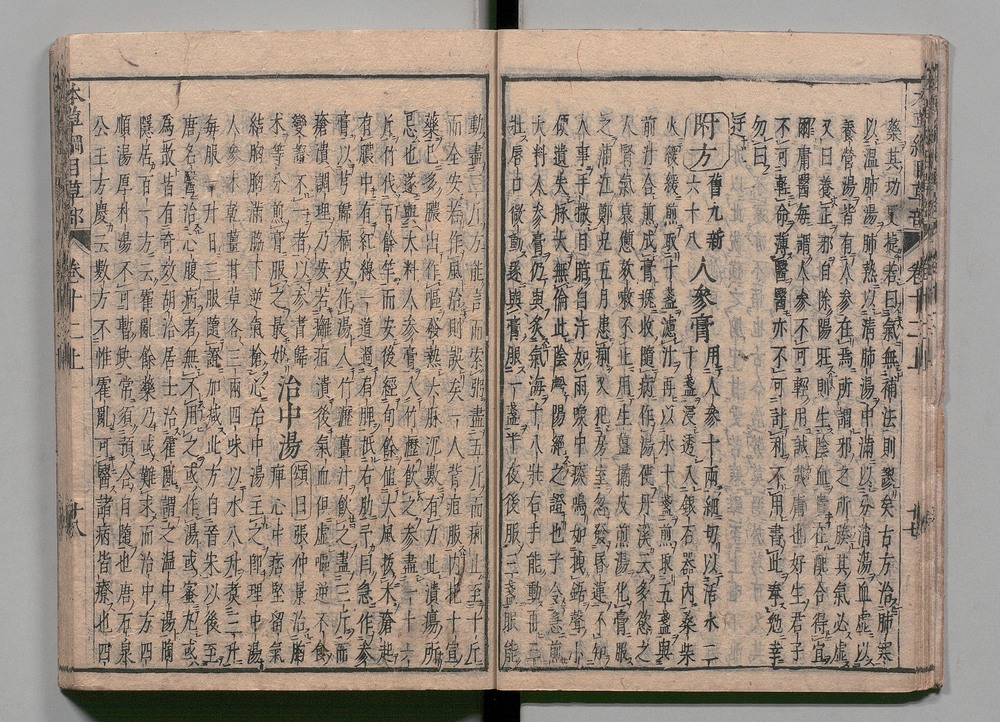 藥其功更捷若曰氣無補法則謬矣古方治肺寒
以溫肺湯肺熱以清肺湯中滿以分消湯血虛以
養營湯皆有人參在焉所謂邪之所輳其氣必虛
又曰養正邪自除陽旺則生陰血貴在配合得宜
爾庸醫每謂人參不可輕用誠哉庸也好生君子
不可輕命薄醫醫亦不可計利不用書此奉勉幸
勿曰
迂
附方
舊九新
六十八
人參膏
用人參十兩細切以活水二
十盞浸透入銀石器內桑柴
火緩緩煎取十盞濾汁再以水十盞煎取五盞與
前汁合煎成膏瓶收隨病作湯使丹溪云多慾之
人腎氣衰憊欬嗽不止用生薑橘皮煎湯化膏服
之浦江鄭兄五月患痢又犯房室忽發昏運不知
人事手撒目暗自汗如雨喉中痰鳴如拽鋸聲小
便遺失脉大無倫此陰虧陽絕之證也予令急煎
大料人參膏仍與灸氣海十八壯右手能動再三
壯唇口微動遂與膏服一盞半夜後服三盞眼能
動盡三斤方能言而索粥盡五斤而痢止至十斤
而全安若作風治則誤矣一人背疽服內托十宣
藥已多膿出作嘔發熱六脉沉數有力此潰瘍所
忌也遂與大料人參膏入竹瀝飲之參盡一十六
斤竹伐百餘竿而安後經旬餘值大風拔木瘡起
有膿中有紅線一道過肩胛抵右肋予曰急作參
膏以芎歸橘皮作湯入竹瀝薑汁飲之盡三斤而
瘡潰調理乃安若癰疽潰後氣血俱虛嘔逆不食
變證不一者以參耆歸
朮等分煎膏服之最妙
治中湯
頌曰張仲景治胸
痺心中痞堅留氣
結胸胸滿脇下逆氣搶心治中湯主之即理中湯
人參朮乾薑甘草各三兩四味以水八升煮三升
每服一升日三服隨證加減此方自晉宋以後至
唐名醫治心腹病者無不用之或作湯或蜜丸或
為散皆有奇效胡洽居士治霍亂謂之溫中湯陶
隱居百一方云霍亂餘藥乃或難求而治中方四
順湯厚朴湯不可暫缺常須預合自隨也唐石泉
公王方慶云數方不惟霍亂可醫諸病皆療也四
本草綱目草部 卷十二上 廿八